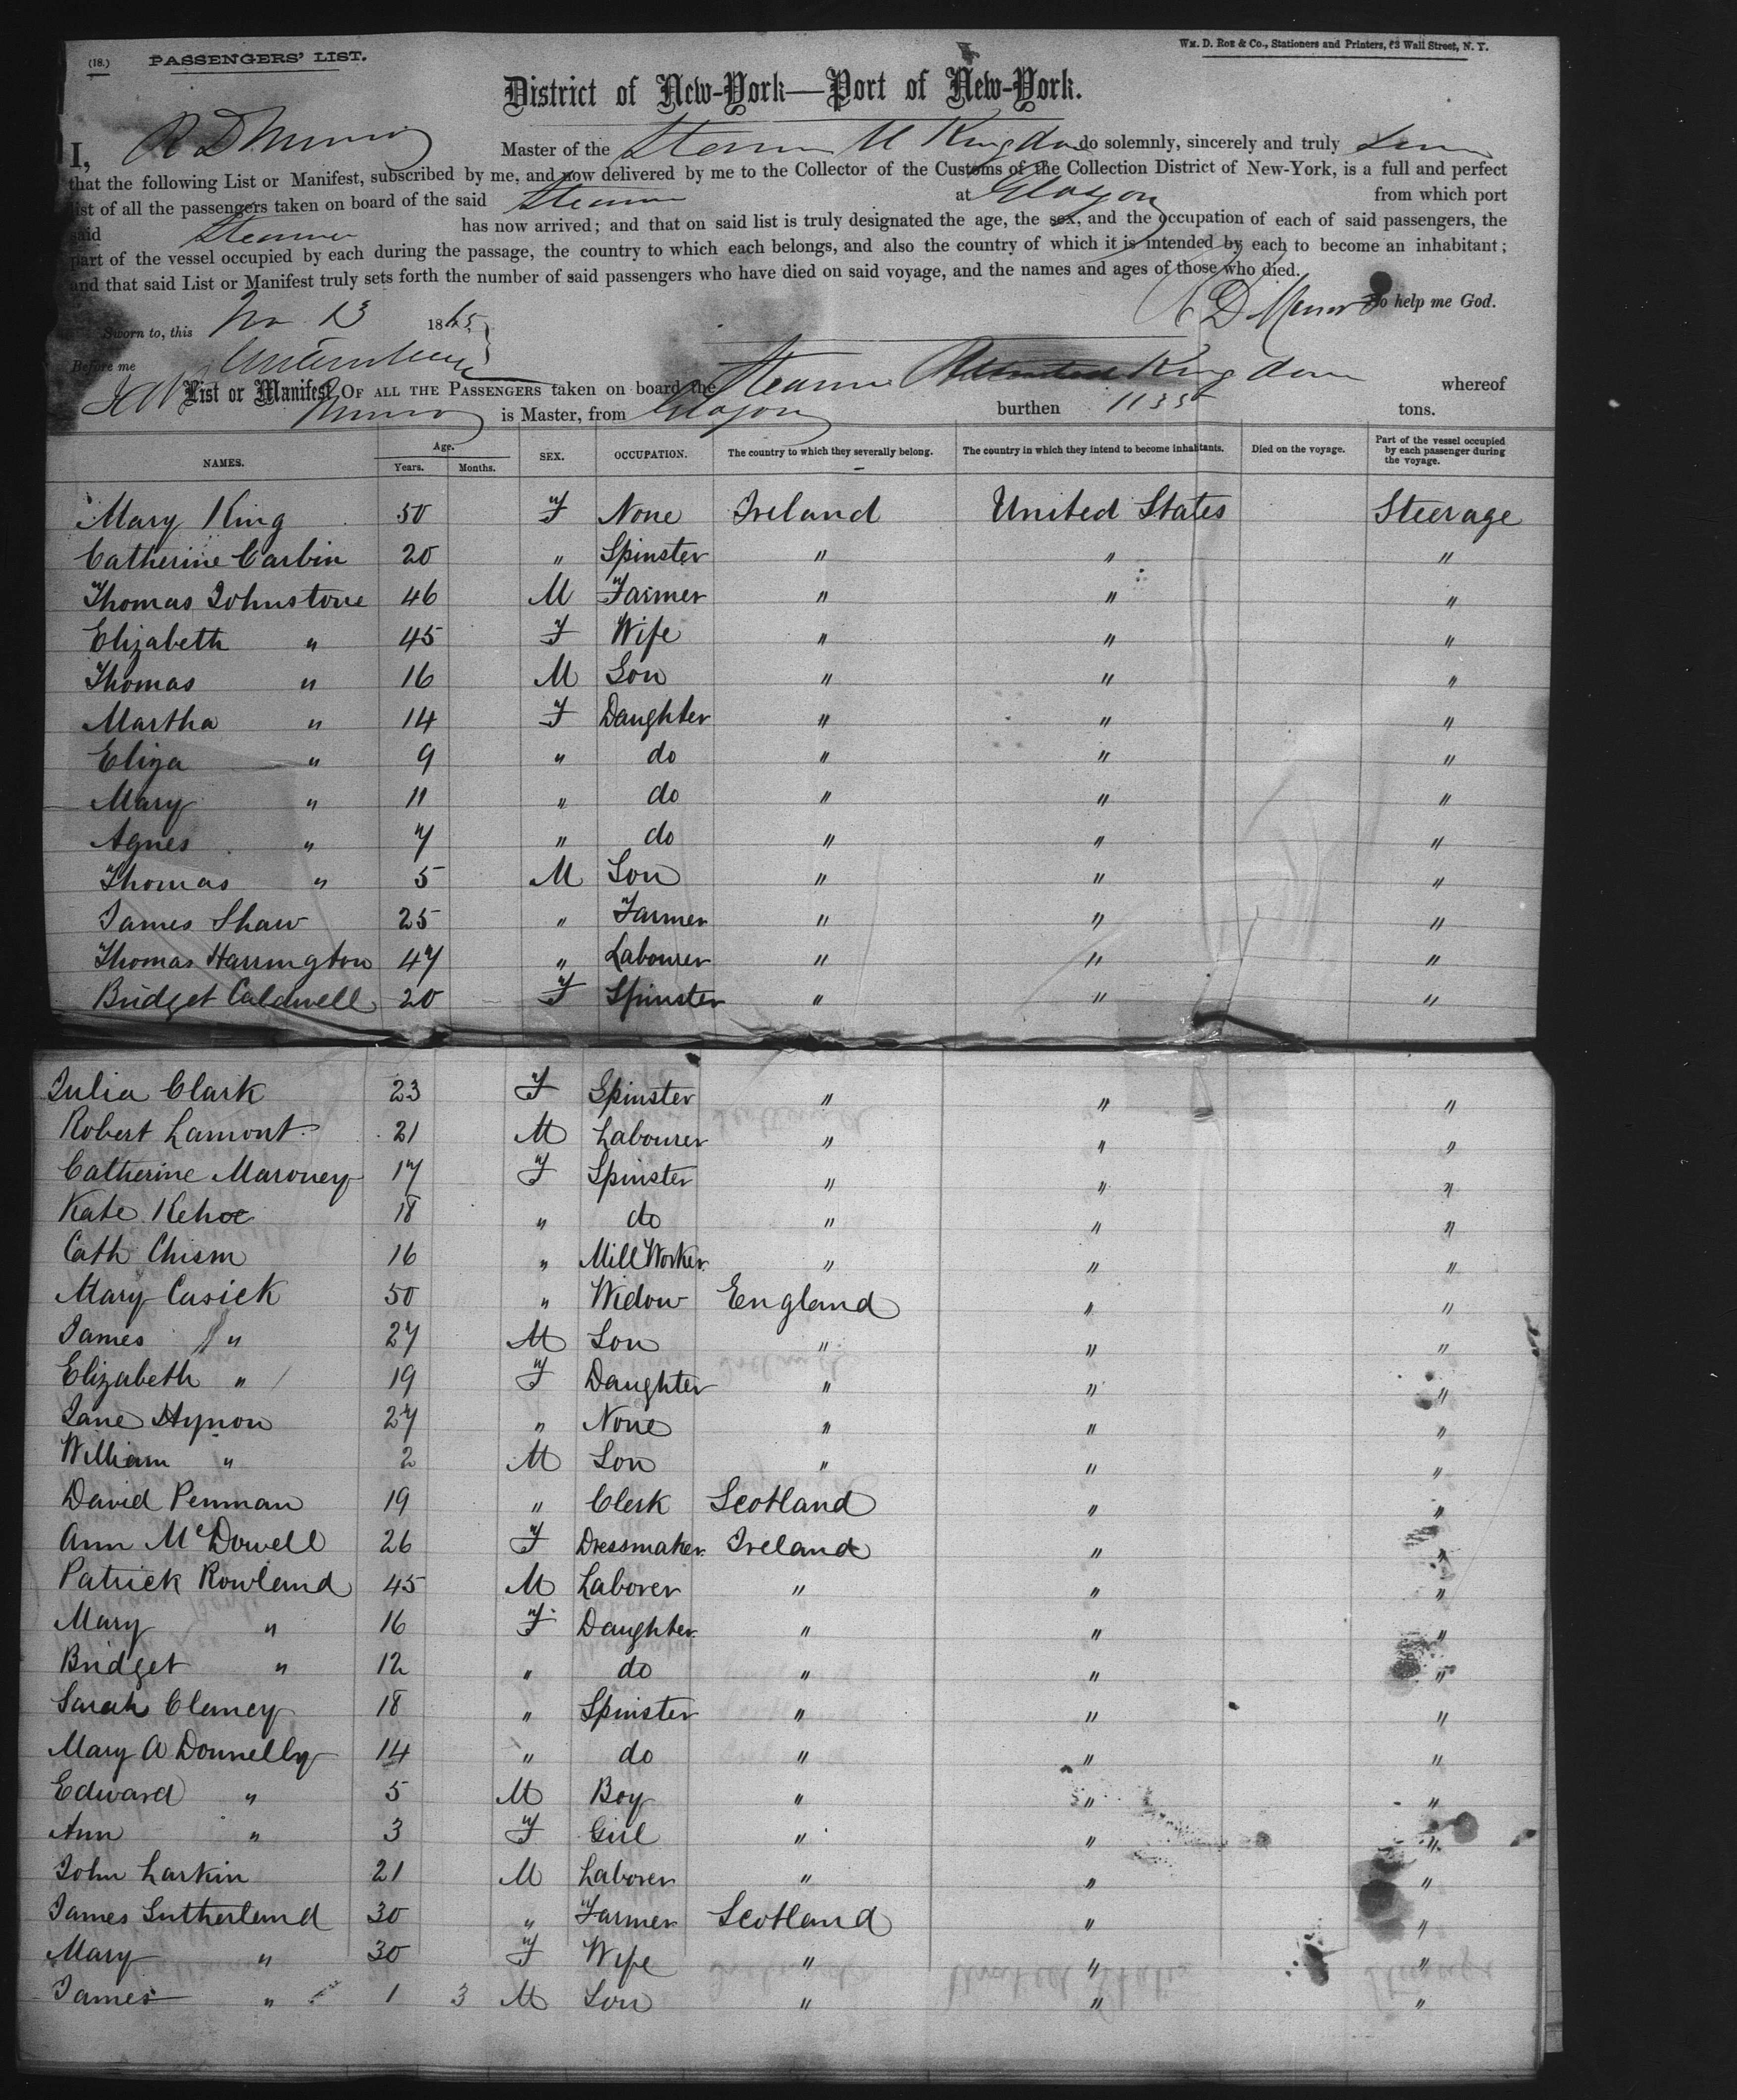 (18.) PASSENGERS' LIST. Wm. D. Roe & Co., Stationers and Printers, 63 Wall Street, N. Y.
District of New-York—Port of New-York.
I, R D Munro Master of the Steamer U Kingdom do solemnly, sincerely and truly
that the following List or Manifest, subscribed by me, and now delivered by me to the Collector of the Customs of the Collection District of New-York, is a full and perfect
list of all the passengers taken on board of the said Steamer at Glasgow from which port
said Steamer has now arrived; and that on said list is truly designated the age, the sex, and the occupation of each of said passengers, the
part of the vessel occupied by each during the passage, the country to which each belongs, and also the country of which it is intended by each to become an inhabitant;
and that said List or Manifest truly sets forth the number of said passengers who have died on said voyage, and the names and ages of those who died.
So help me God.
R D Munro
Sworn to, this 13 1865
Before me
List or Manifest OF ALL THE PASSENGERS taken on board the Steamer United Kingdom whereof
Munro is Master, from Glasgow burthen 1135 tons.
NAMES. Age. Years. Months. SEX. OCCUPATION. The country to which they severally belong. The country in which they intend to become inhabitants. Died on the voyage. Part of the vessel occupied by each passenger during the voyage.
Mary King 50 F None Ireland United States Steerage
Catherine Carbin 20 " Spinster " " "
Thomas Johnstone 46 M Farmer " " "
Elizabeth " 45 F Wife " " "
Thomas " 16 M Son " " "
Martha " 14 F Daughter " " "
Eliza " 9 " do " " "
Mary " 11 " do " " "
Agnes " 7 " do " " "
Thomas " 5 M Son " " "
James Shaw 25 " Farmer " " "
Thomas Harrington 47 " Labourer " " "
Bridget Caldwell 20 F Spinster " " "
Julia Clark 23 F Spinster " " "
Robert Lamont 21 M Labourer " " "
Catherine Maroney 17 F Spinster " " "
Kate Kehoe 18 " do " " "
Cath Chism 16 " Mill Worker " " "
Mary Cusick 50 " Widow England " "
James " 27 M Son " " "
Elizabeth " 19 F Daughter " " "
Jane Hynon 27 " None " " "
William " 2 M Son " " "
David Penman 19 " Clerk Scotland " "
Ann McDowell 26 F Dressmaker Ireland " "
Patrick Rowland 45 M Laborer " " "
Mary " 16 F Daughter " " "
Bridget " 12 " do " " "
Sarah Clancy 18 " Spinster " " "
Mary A Donnelly 14 " do " " "
Edward " 5 M Boy " " "
Ann " 3 F Girl " " "
John Larkin 21 M Laborer " " "
James Sutherland 30 " Farmer Scotland " "
Mary " 30 F Wife " " "
James " 1 3 M Son " " "